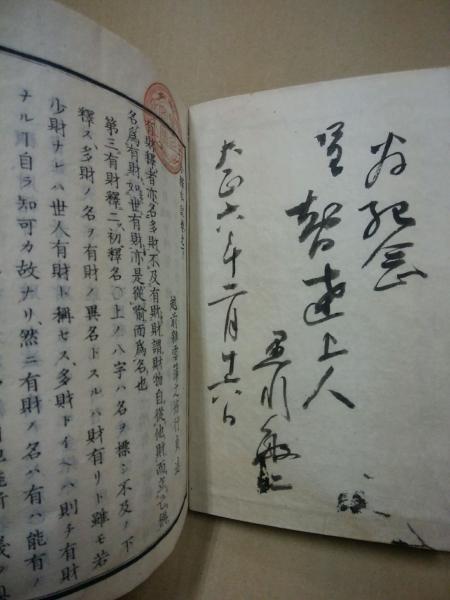 為紀念
呈智達上人
大正六年二月廿六日
卷之下
越前
有財釋者亦名多財不及有財財謂財物自從他財而爲己稱
名爲有財如世有財亦是從喩而爲名也
第三有財釋二初釋名〇上ノ八字ハ名ヲ標シ不及ノ下
釋ス多財ノ名ヲ有財ノ異名トスルハ財有リト雖モ若
少財ナレハ世人有財ト稱セス多財トイヘハ則チ有財
ナルヿ自ラ知可カ故ナリ、然ニ有財ノ名ハ有ハ能有ノ